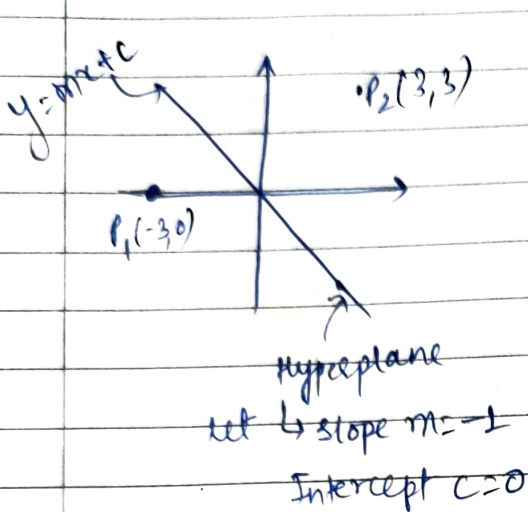 y=mx+c
.P2(3,3)
P1(-3,0)
Hyperplane
let ↳ slope m=-1
Intercept c=0